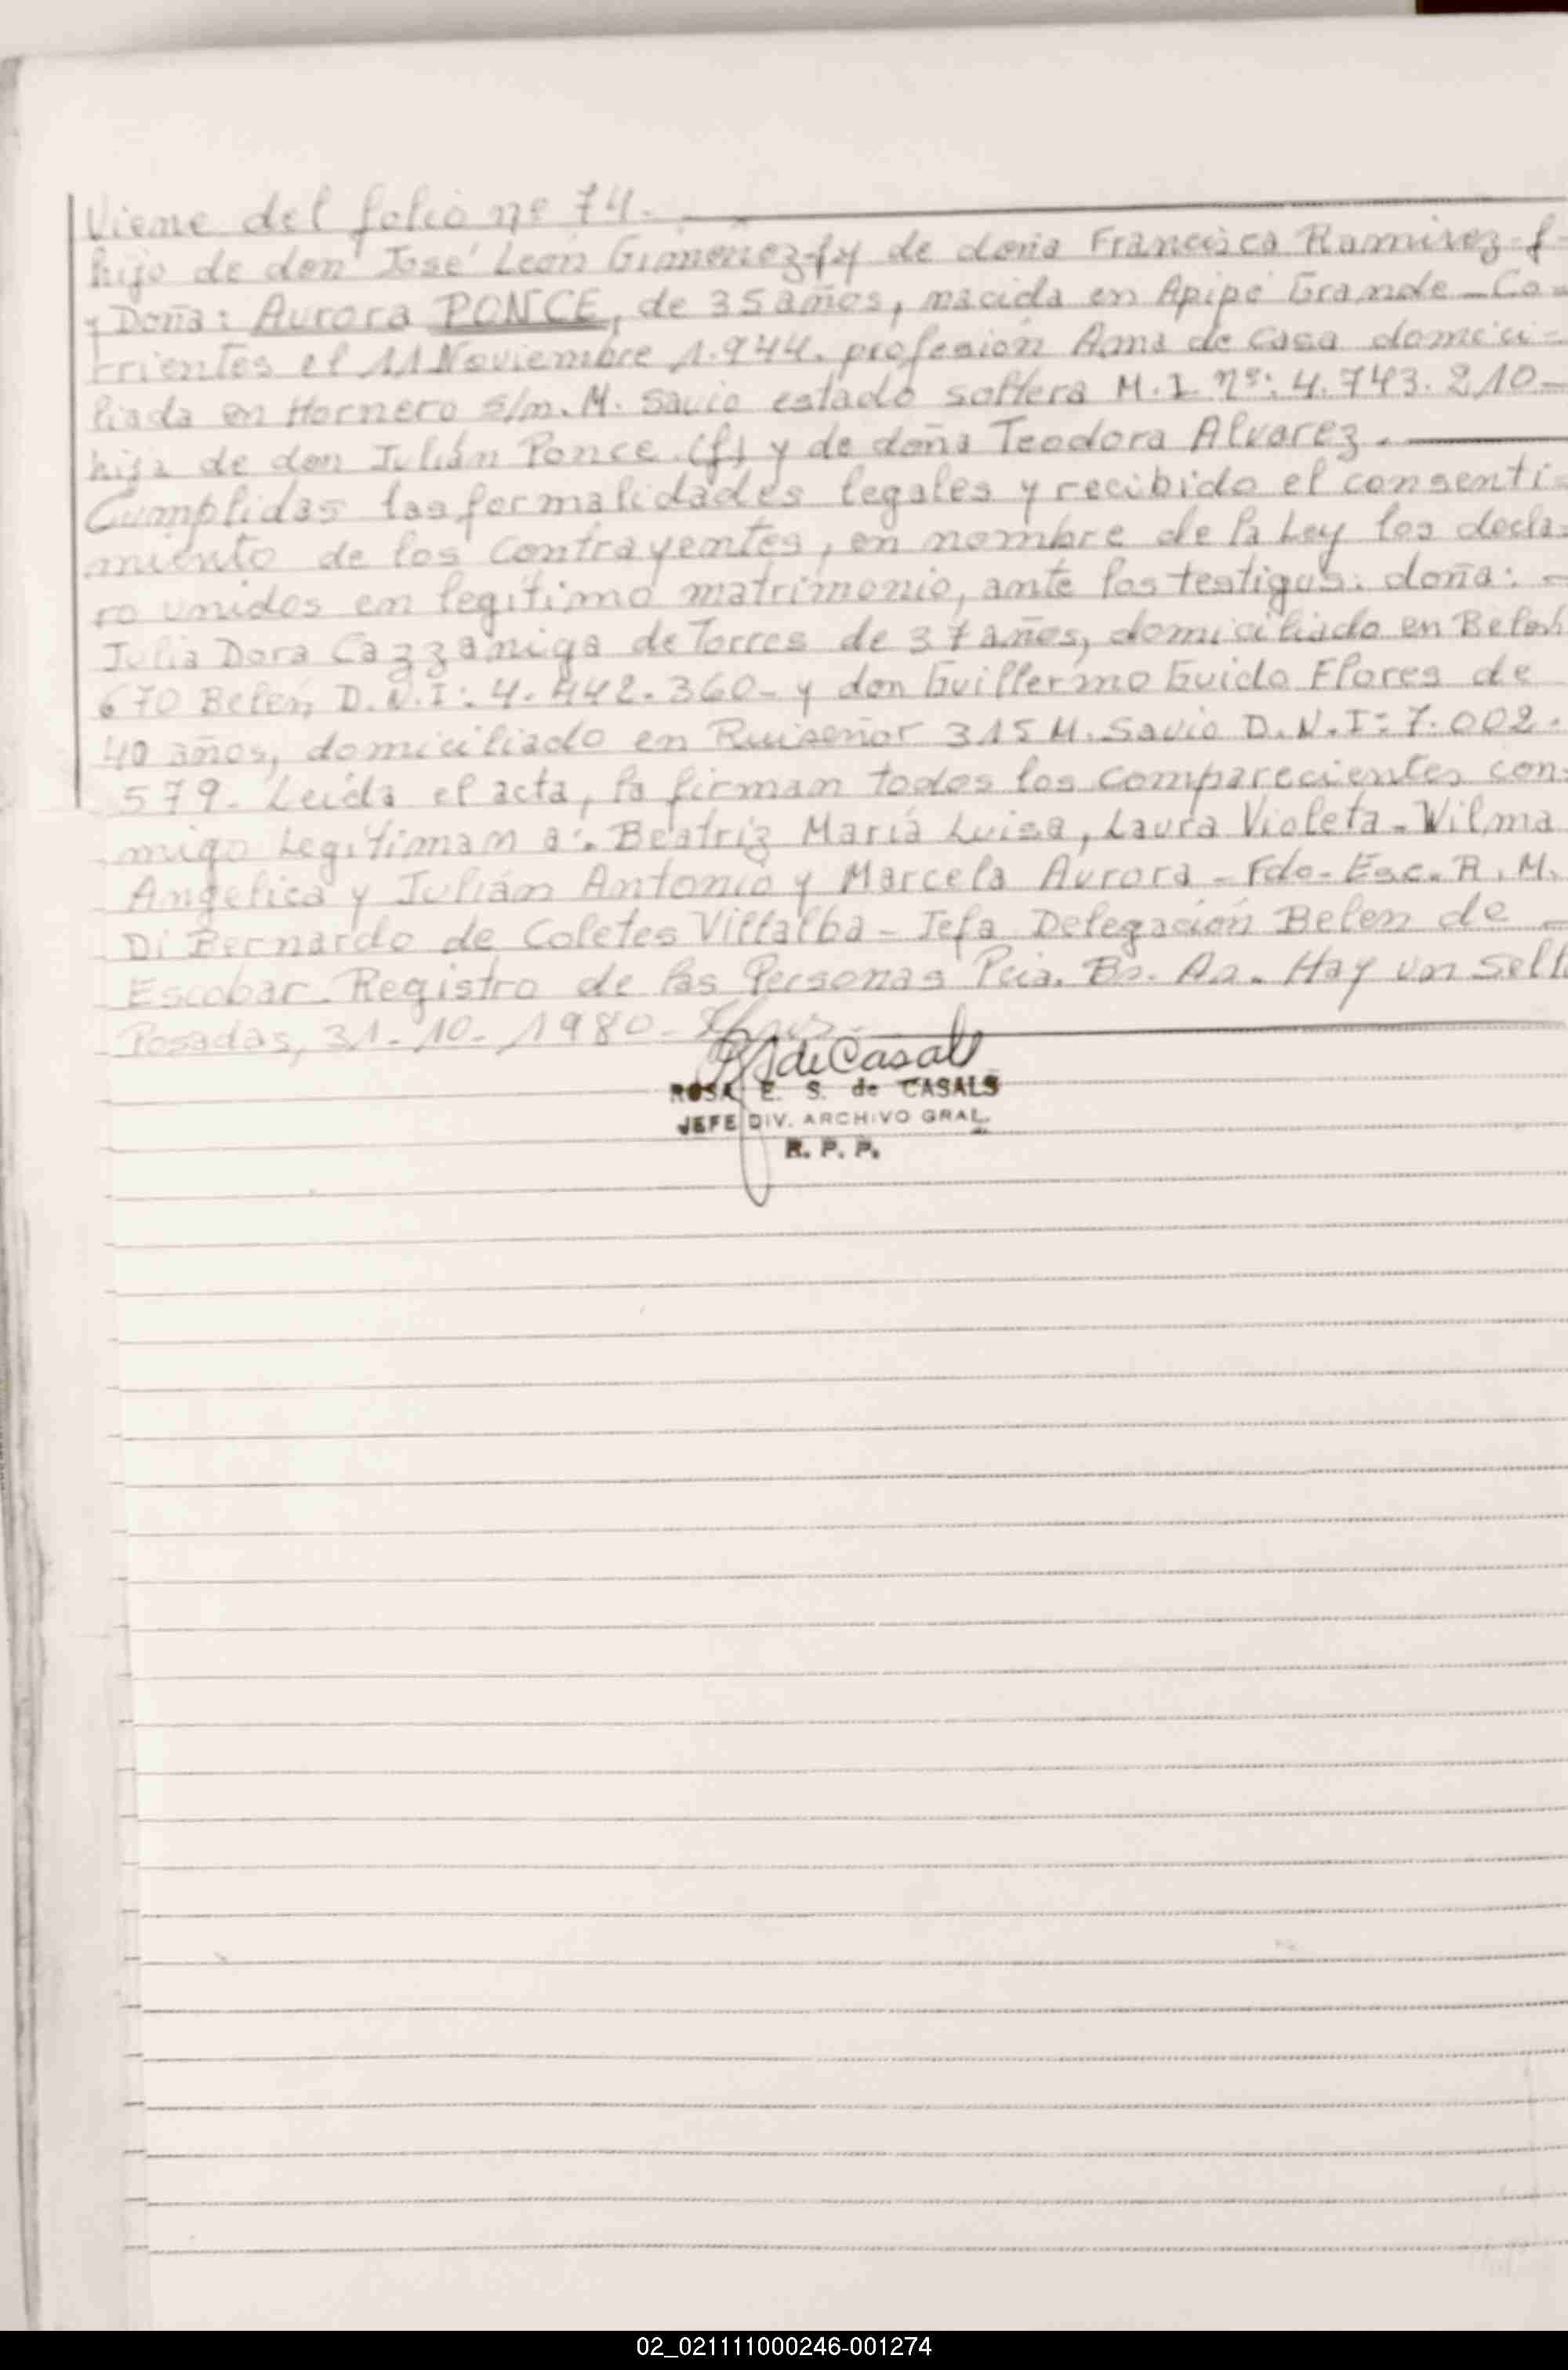 Viene del folio nº 74.-
hijo de don José León Gimenez-f y de doña Francisca Ramirez-f-
y Doña: Aurora PONCE, de 35 años, nacida en Apipé Grande - Co-
rrientes el 11 Noviembre 1.944. profesión Ama de Casa domici-
liada en Hornero s/n. M. Savio estado soltera M.I. nº: 4.743.210-
hija de don Julián Ponce (f) y de doña Teodora Alvarez.
Cumplidas las formalidades legales y recibido el consenti-
miento de los Contrayentes, en nombre de la Ley los decla-
ro unidos en legítimo matrimonio, ante los testigos: doña: -
Julia Dora Cazzaniga de Torres de 37 años, domiciliado en
670 Belén, D.N.I: 4.442.360- y don Guillermo Guido Flores de
40 años, domiciliado en Ruiseñor 315 M. Savio D.N.I: 7.002.
579. Leída el acta, la firman todos los comparecientes con-
migo Legitiman a: Beatriz María Luisa, Laura Violeta - Wilma
Angelica y Julián Antonio y Marcela Aurora - Fdo- Esc. R. M.
Di Bernardo de Coletes Villalba - Jefa Delegación Belen de -
Escobar - Registro de las Personas Pcia. Bs. As. Hay un Sello
Posadas, 31-10-1980-
de Casals
ROSA E. S. de CASALS
JEFE DIV. ARCHIVO GRAL.
R. P. P.
02_021111000246-001274